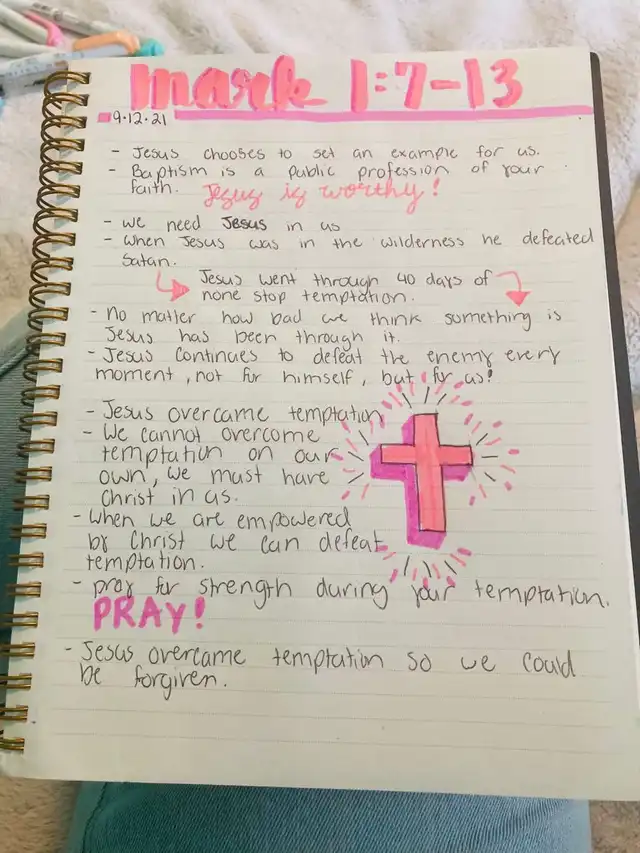 mark 1:7-13
9.12.21
- Jesus chooses to set an example for us.
- Baptism is a public profession of your
faith. Jesus is worthy!
- we need Jesus in us
- when Jesus was in the wilderness he defeated
Satan.
Jesus went through 40 days of
none stop temptation.
- No matter how bad we think something is
Jesus has been through it.
- Jesus continues to defeat the enemy every
moment, not for himself, but for us!
- Jesus overcame temptation
- We cannot overcome
temptation on our
own, we must have
Christ in us.
- when we are empowered
by Christ we can defeat
temptation.
- pray for strength during your temptation.
PRAY!
- Jesus overcame temptation so we could
be forgiven.